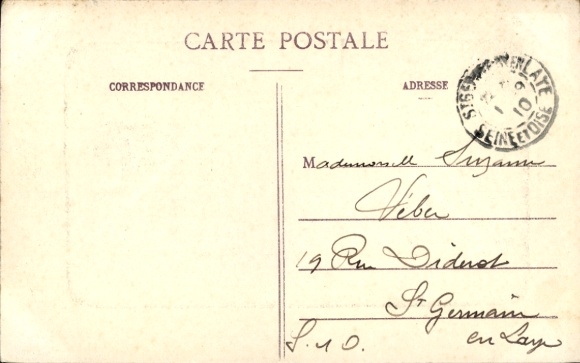 CARTE POSTALE
CORRESPONDANCE
ADRESSE
ST GERMAIN EN LAYE
SEINE ET OISE
Mademoiselle Suzanne
Véber
19 Rue Diderot
St Germain
en Laye
S. & O.